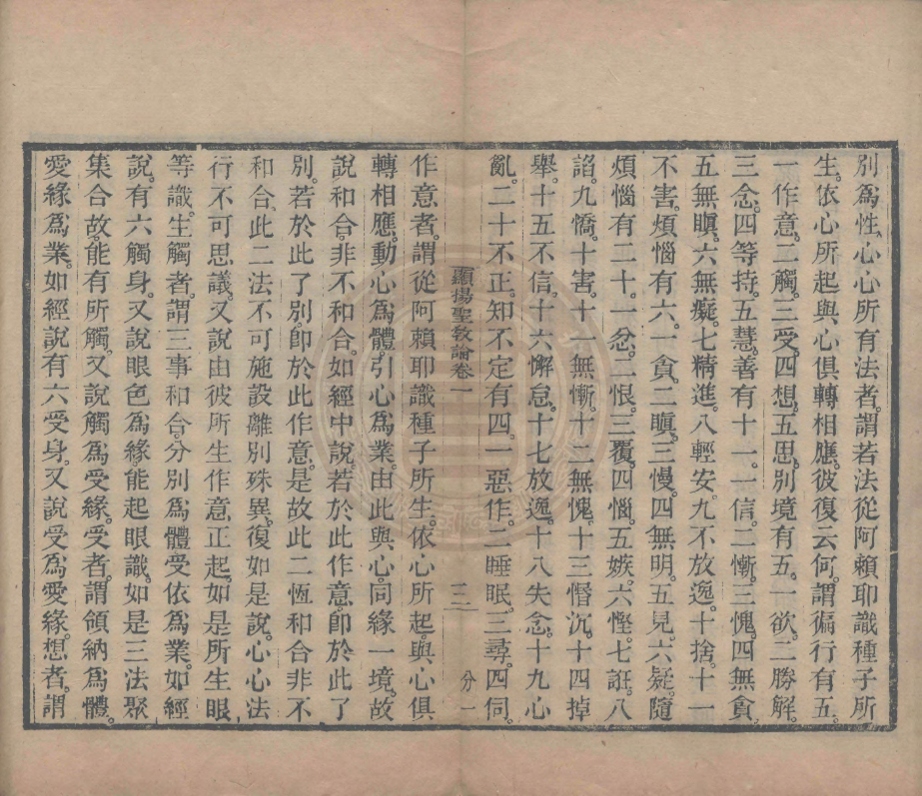 別爲性。心心所有法者。謂若法從阿賴耶識種子所
生。依心所起。與心俱轉相應。彼復云何。謂徧行有五。
一作意。二觸。三受。四想。五思。別境有五。一欲。二勝解。
三念。四等持。五慧。善有十一。一信。二慚。三愧。四無貪。
五無瞋。六無癡。七精進。八輕安。九不放逸。十捨。十一
不害。煩惱有六。一貪。二瞋。三慢。四無明。五見。六疑。隨
煩惱有二十。一忿。二恨。三覆。四惱。五嫉。六慳。七誑。八
諂。九憍。十害。十一無慚。十二無愧。十三惛沉。十四掉
舉。十五不信。十六懈怠。十七放逸。十八失念。十九心
亂。二十不正。知不定有四。一惡作。二睡眠。三尋。四伺。
顯揚聖敎論卷一 三 分一
作意者。謂從阿賴耶識種子所生。依心所起。與心俱
轉相應。動心爲體。引心爲業。由此與心。同緣一境。故
說和合。非不和合。如經中說。若於此作意。卽於此了
別。若於此了別。卽於此作意。是故此二恆和合。非不
和合。此二法不可施設離別殊異。復如是說。心心法
行不可思議。又說由彼所生作意正起。如是所生眼
等識。生觸者。謂三事和合。分別爲體。受依爲業。如經
說。有六觸身。又說眼色爲緣。能起眼識。如是三法聚
集合故。能有所觸。又說觸爲受緣。受者。謂領納爲體。
愛緣爲業。如經說有六受身。又說受爲愛緣。想者。謂